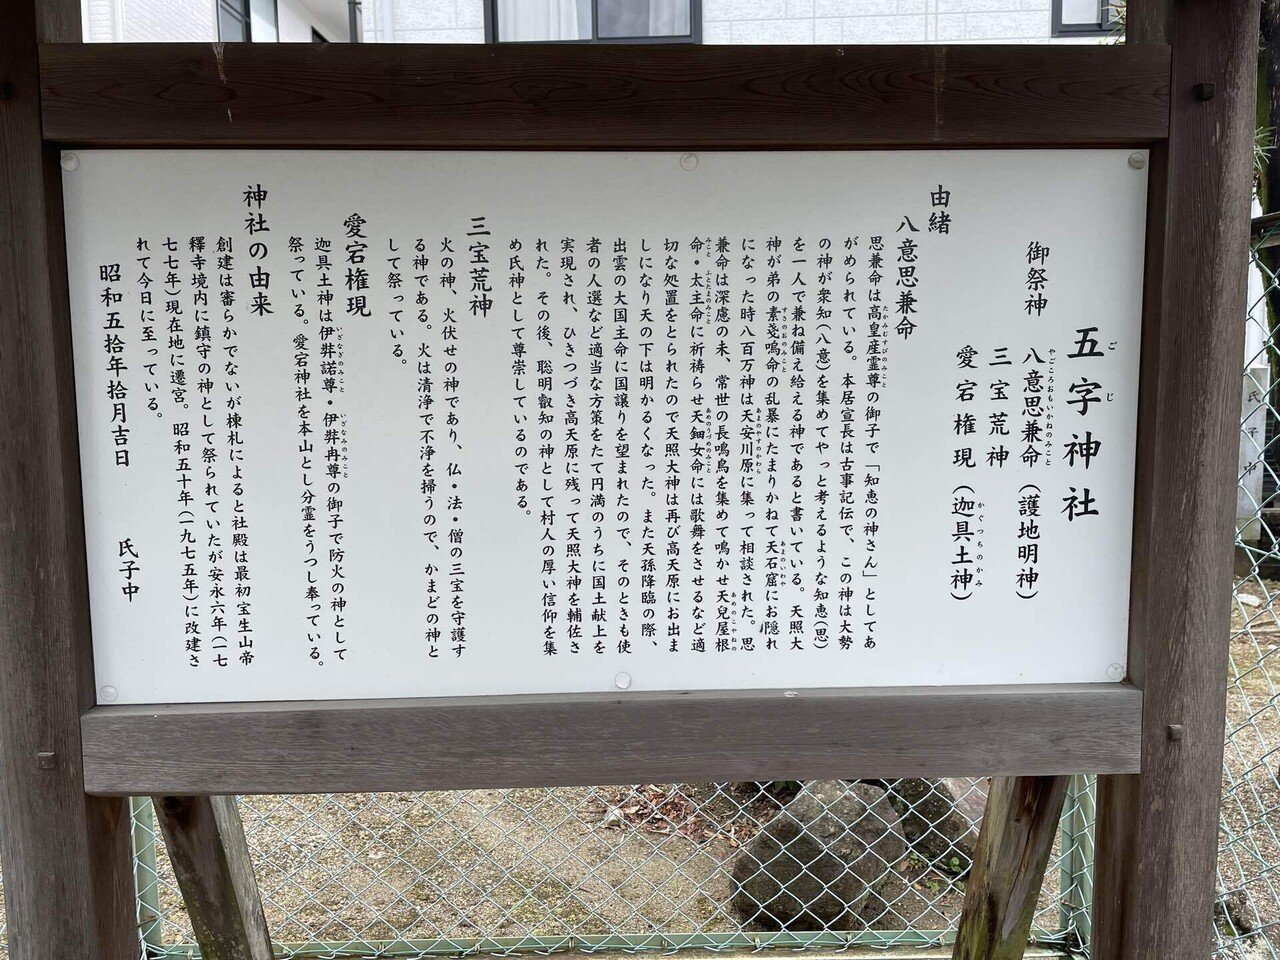 五字神社
ごじ
御祭神
八意思兼命(護地明神)
やごころおもいかねのみこと
三宝荒神
愛宕権現(迦具土神)
かぐつちのかみ
由緒
八意思兼命
思兼命は高皇産霊尊の御子で「知恵の神さん」としてあ
たかみむすびのみこと
がめられている。本居宣長は古事記伝で、この神は大勢
の神が衆知(八意)を集めてやっと考えるような知恵(思)
を一人で兼ね備え給える神であると書いている。天照大
神が弟の素戔嗚命の乱暴にたまりかねて天石窟にお隠れ
すさのおのみこと
あまのいわや
になった時八百万神は天安川原に集って相談された。思
あまのやすのかわら
兼命は深慮の末、常世の長鳴鳥を集めて鳴かせ天兒屋根
あめのこやねの
命・太主命に祈祷らせ天鈿女命には歌舞をさせるなど適
みこと
ふとたまのみこと
あめのうづめのみこと
切な処置をとられたので天照大神は再び高天原にお出ま
しになり天の下は明かるくなった。また天孫降臨の際、
出雲の大国主命に国譲りを望まれたので、そのときも使
者の人選など適当な方策をたて円満のうちに国土献上を
実現され、ひきつづき高天原に残って天照大神を輔佐さ
れた。その後、聡明叡知の神として村人の厚い信仰を集
め氏神として尊崇しているのである。
三宝荒神
火の神、火伏せの神であり、仏・法・僧の三宝を守護す
る神である。火は清浄で不浄を掃うので、かまどの神と
して祭っている。
愛宕権現
迦具土神は伊弉諾尊・伊弉冉尊の御子で防火の神として
いざなぎのみこと
いざなみのみこと
祭っている。愛宕神社を本山とし分霊をうつし奉っている。
神社の由来
創建は審らかでないが棟札によると社殿は最初宝生山帝
釋寺境内に鎮守の神として祭られていたが安永六年(一七
七七年)現在地に遷宮。昭和五十年(一九七五年)に改建さ
れて今日に至っている。
昭和五拾年拾月吉日 氏子中